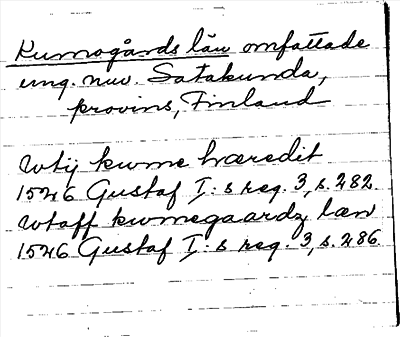 Kumogårds län omfattade
ung. nuv. Satakunda,
provins, Finland
Wtij kwme hæredit
1546 Gustaf I:s reg. 3, s. 282.
Wtaff kwmegaardz læn
1546 Gustaf I:s reg. 3, s. 286.